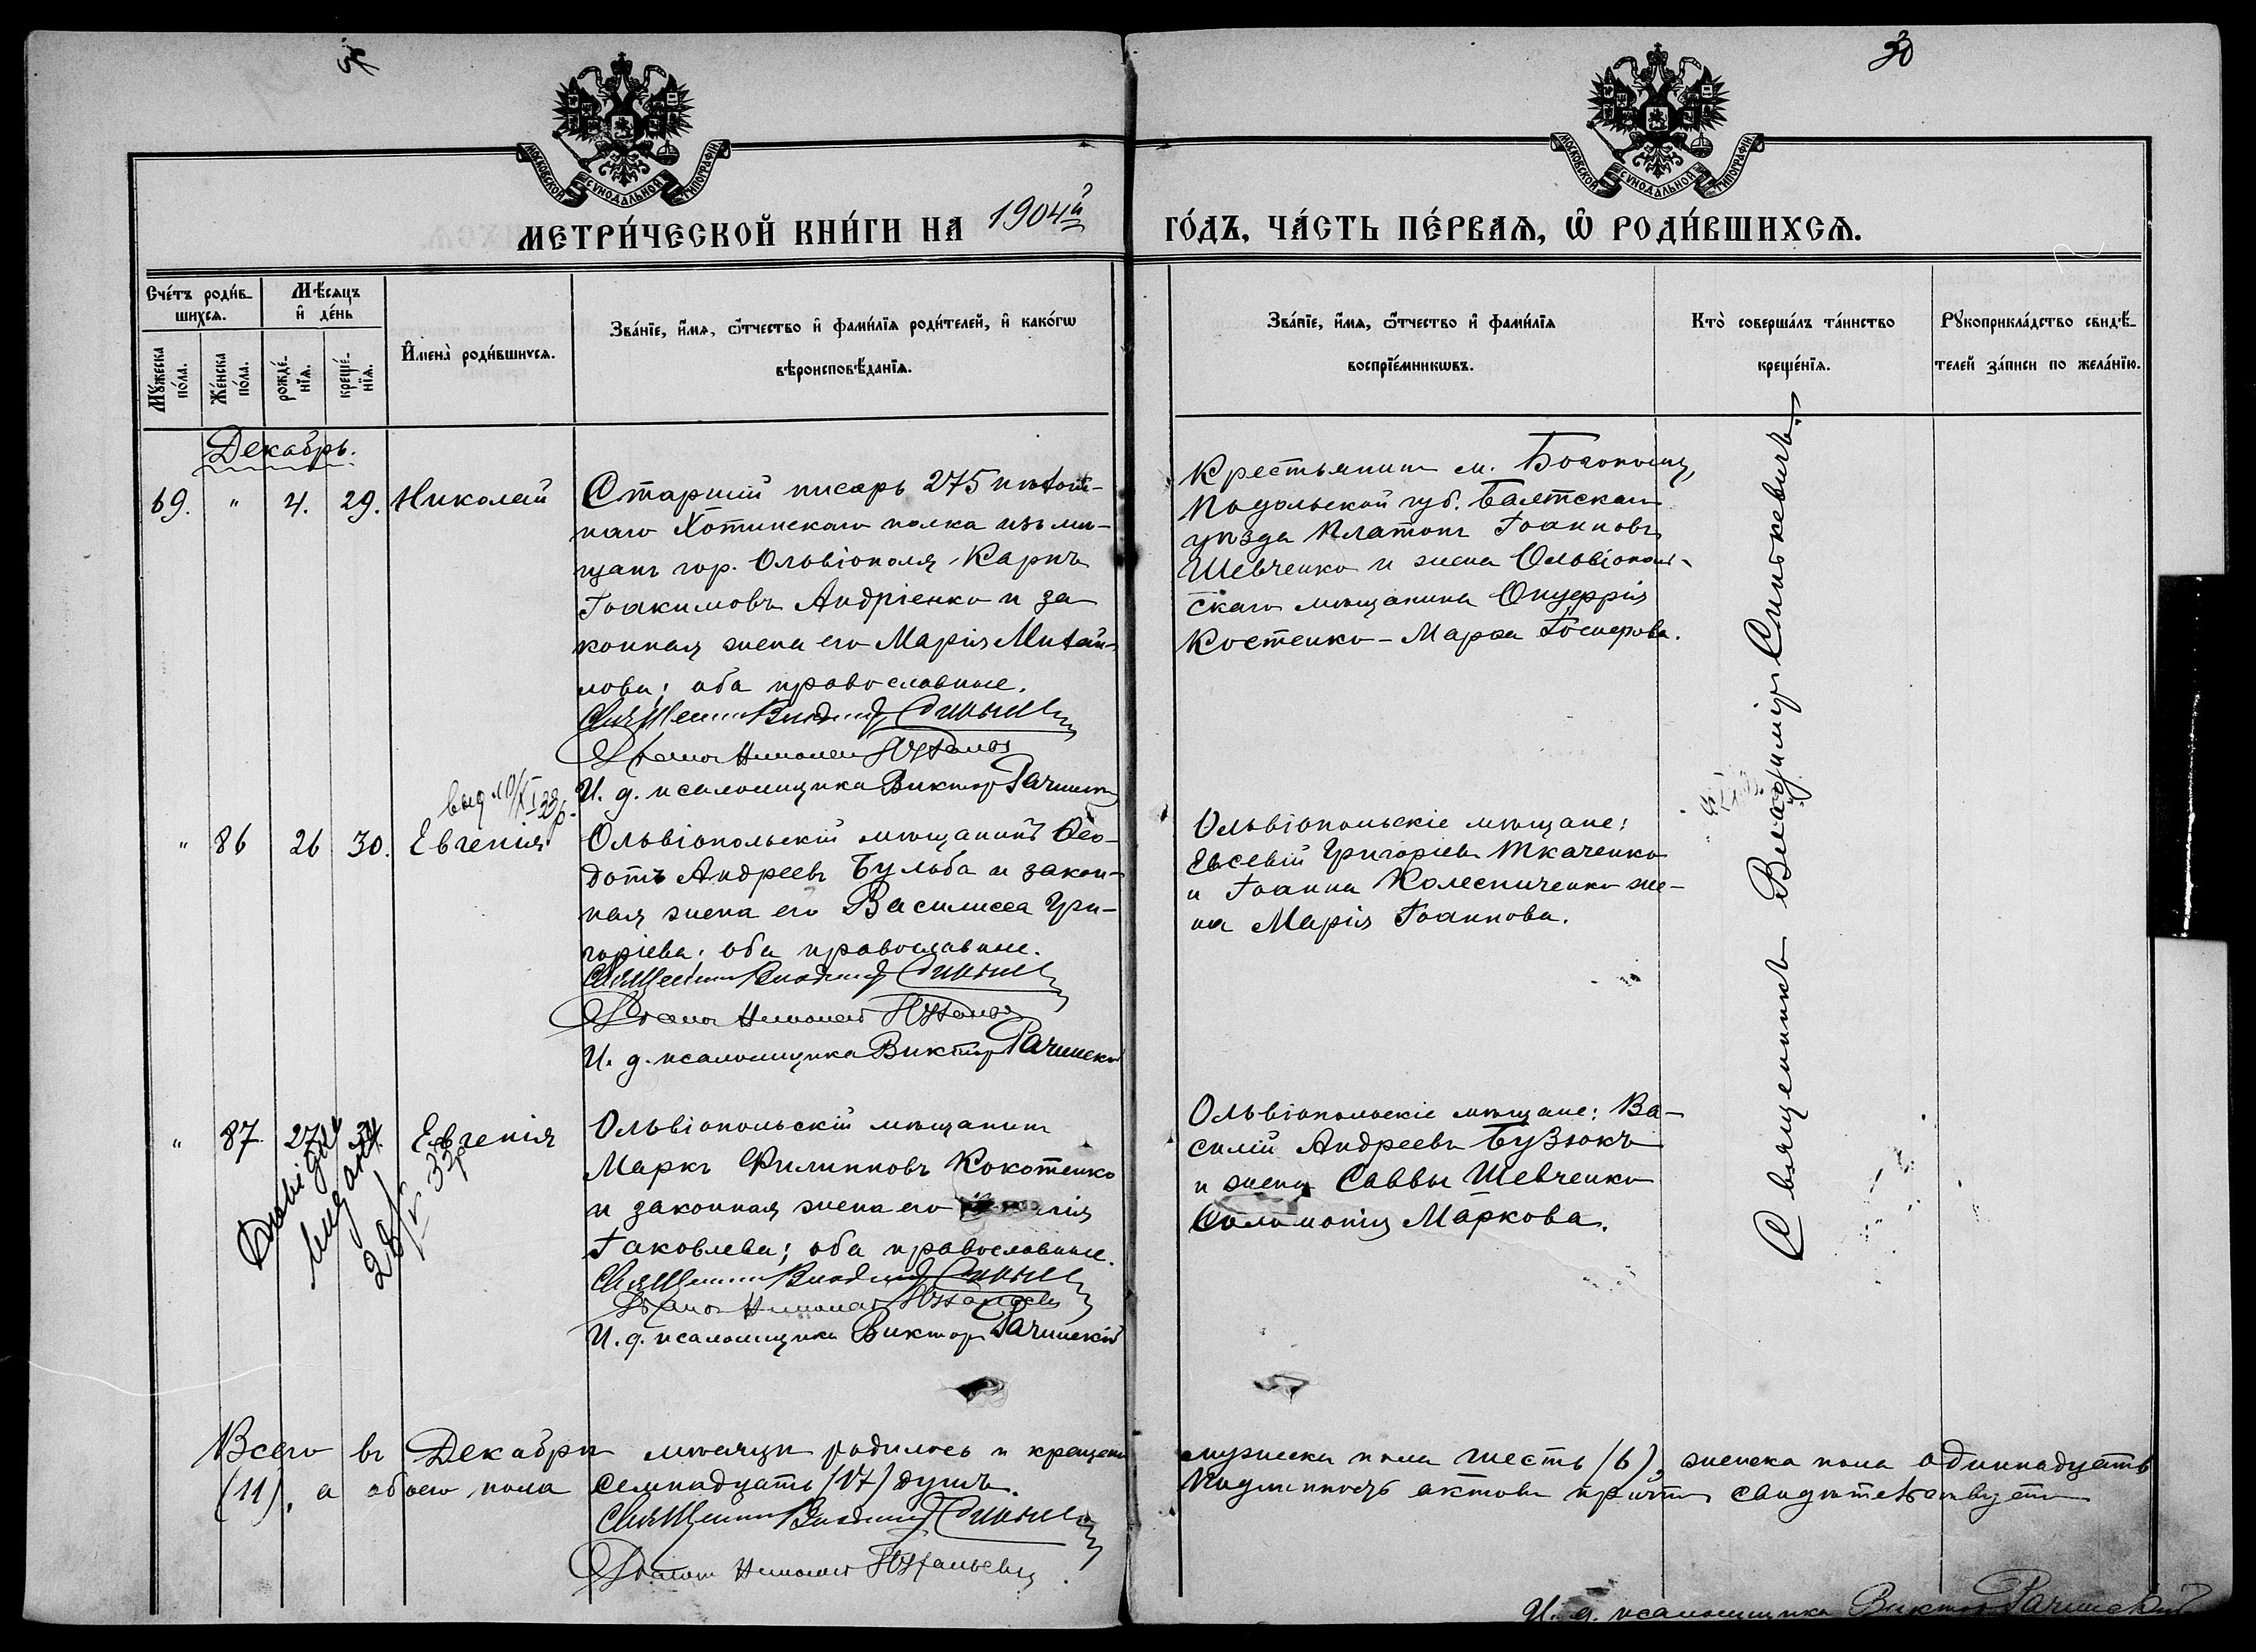 30
МОСКОВСКОЙ СУНОДАЛЬНОЙ ТИПОГРАФІИ
МОСКОВСКОЙ СУНОДАЛЬНОЙ ТИПОГРАФІИ
МЕТРИ́ЧЕСКОЙ КНИ́ГИ НА 1904й ГО́ДЪ, ЧА́СТЬ ПЕ́РВАЯ, Ѡ РОДИ́ВШИХСЯ.
Сче́тъ роди́в-
шихся.
Мѣ́сяцъ
и҆ де́нь
Мꙋ́жеска
по́ла.
Же́нска
по́ла.
рожде́-
нїѧ.
креще́-
нїѧ.
И҆мена̀ роди́вшихсѧ.
Зва́нїе, и҆́мѧ, ѻ҆́тчество и҆ фами́лїѧ роди́телей, и҆ како́гѡ
вѣроисповѣ́данїѧ.
Зва́нїе, и҆́мѧ, ѻ҆́тчество и҆ фами́лїѧ
воспрїе́мникѡвъ.
Кто̀ соверша́лъ та́инство
креще́нїѧ.
Рꙋкоприкла́дство свидѣ́-
телей за́писи по жела́нїю.
Декабрь.
69. " 4. 29. Николай
Старшій писарь 275 пѣхот-
наго Хотинскаго полка изъ мѣ-
щанъ гор. Ольвіополя Карпъ
Іоакимовъ Андріенко и за
конная жена его Марія Михай-
лова; оба православные.
Священникъ Владиміръ
Николай
И. д. псаломщика Викторъ Рачинскій
Крестьянинъ м. Богополя,
Подольской губ. Балтскаго
уѣзда Платонъ Іоанновъ
Шевченко и жена Ольвіополь-
скаго мѣщанина Онуфрія
Костенко - Марѳа
Священникъ Владиміръ Синькевичъ.
выд. 10/XI 33р.
" 86 26 30. Евгенія
Ольвіопольскій мѣщанинъ Ѳео-
дотъ Андреевъ Бульба и закон-
ная жена его Василисса Гри-
горіева; оба православные.
Священникъ Владиміръ
Николай
И. д. псаломщика Викторъ Рачинскій
Ольвіопольскіе мѣщане:
Евсевій Григоріевъ Ткаченко
и Іоанна Колесниченко же-
на Марія Іоаннова.
" 87. 27 Евгенія
33р
Ольвіопольскій мѣщанинъ
Маркъ Филипповъ Кокотенко
и законная жена его
Іаковлева; оба православные.
Священникъ Владиміръ
Николай
И. д. псаломщика Викторъ Рачинскій
Ольвіопольскіе мѣщане: Ва-
силій Андреевъ Бузюкъ
и жена Саввы Шевченко
Соломонія Маркова.
Всего въ Декабрѣ мѣсяцѣ родилось и крещено мужеска пола шесть (6), женска пола одиннадцать
(11), а обоего пола семнадцать (17) душъ. Подлинность актовъ причтъ свидѣтельствуетъ
Священникъ Владиміръ
Николай
И. д. псаломщика Викторъ Рачинскій